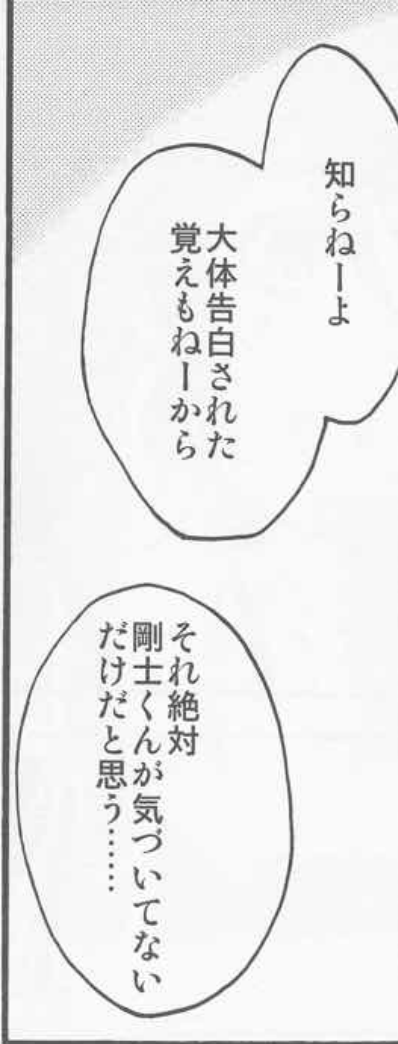 知らねーよ
大体告白された
覚えもねーから
それ絶対
剛士くんが気づいてない
だけだと思う……